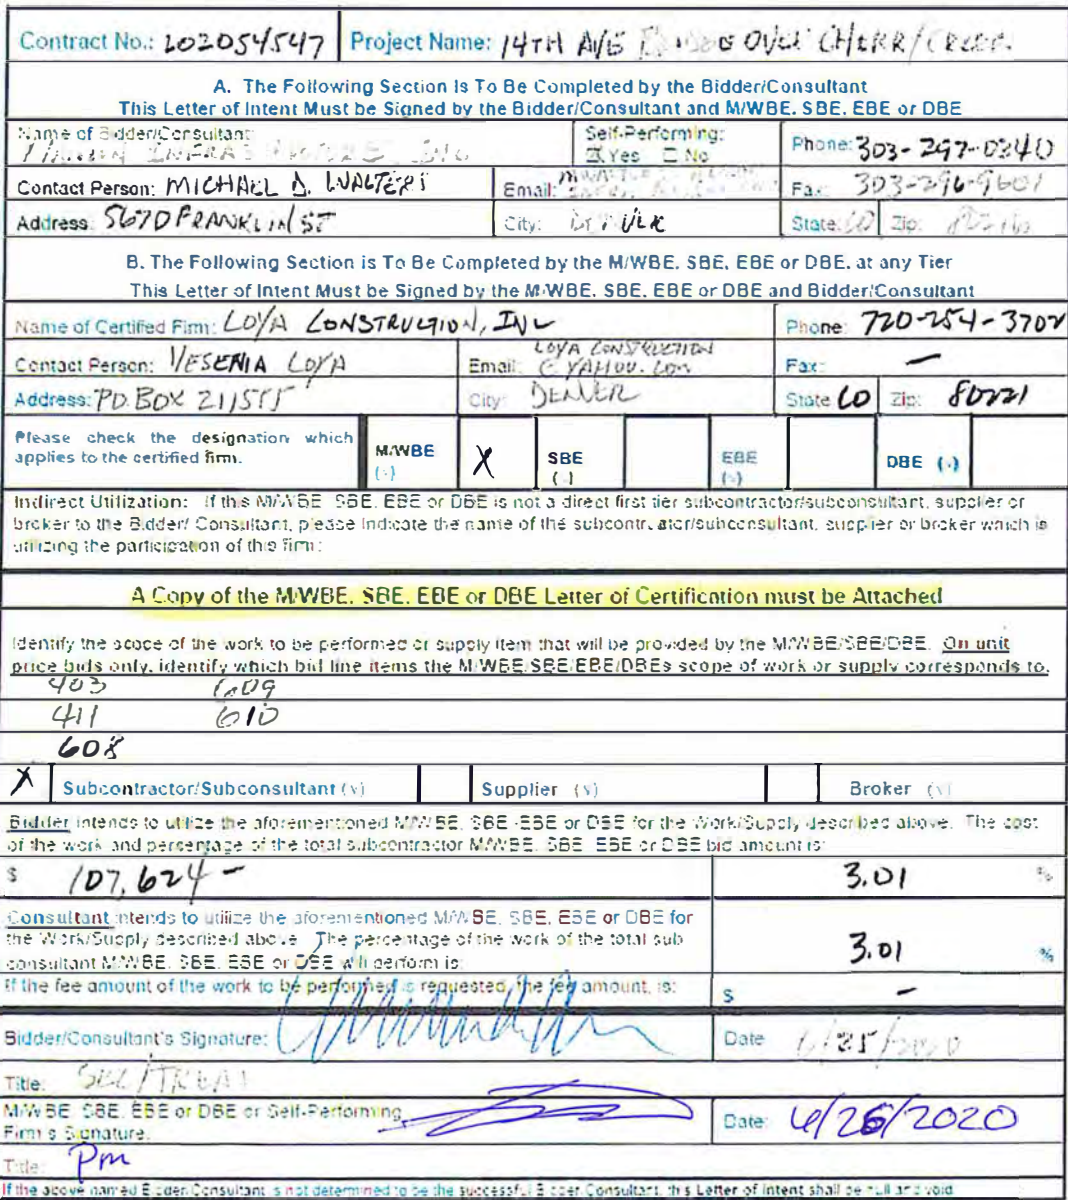 Contract No.: 202054547 Project Name: 14TH AVE OVER CHERRY CREEK
A. The Following Section Is To Be Completed by the Bidder/Consultant
This Letter of Intent Must be Signed by the Bidder/Consultant and M/WBE, SBE, EBE or DBE
Name of Bidder/Consultant: INFRASTRUCTURE, INC Self-Performing: X Yes No Phone: 303-297-0340
Contact Person: MICHAEL D. WALTERS Email: Fax: 303-296-9601
Address: 5670 FRANKLIN ST City: DENVER State: CO Zip:
B. The Following Section is To Be Completed by the M/WBE, SBE, EBE or DBE, at any Tier
This Letter of Intent Must be Signed by the M/WBE, SBE, EBE or DBE and Bidder/Consultant
Name of Certified Firm: LOYA CONSTRUCTION, INC Phone: 720-254-3702
Contact Person: YESENIA LOYA Email: LOYA CONSTRUCTION @ YAHOO.COM Fax: —
Address: PO. BOX 211555 City: DENVER State CO Zip: 80221
Please check the designation which applies to the certified firm. M/WBE (√) X SBE (√) EBE (√) DBE (√)
Indirect Utilization: If this M/WBE, SBE, EBE or DBE is not a direct first tier subcontractor/subconsultant, supplier or
broker to the Bidder/ Consultant, please indicate the name of the subcontractor/subconsultant, supplier or broker which is
utilizing the participation of this firm:
A Copy of the M/WBE, SBE, EBE or DBE Letter of Certification must be Attached
Identify the scope of the work to be performed or supply item that will be provided by the M/WBE/SBE/DBE. On unit
price bids only, identify which bid line items the M/WBE/SBE/EBE/DBEs scope of work or supply corresponds to.
403 609
411 610
608
X Subcontractor/Subconsultant (√) Supplier (√) Broker (√)
Bidder intends to utilize the aforementioned M/WBE, SBE -EBE or DBE for the Work/Supply described above. The cost
of the work and percentage of the total subcontractor M/WBE, SBE, EBE or DBE bid amount is:
$ 107,624 - 3.01 %
Consultant intends to utilize the aforementioned M/WBE, SBE, EBE or DBE for
the Work/Supply described above. The percentage of the work of the total sub
consultant M/WBE, SBE, EBE or DBE will perform is: 3.01 %
If the fee amount of the work to be performed is requested, the fee amount, is: $ -
Bidder/Consultant's Signature: Date 6/25/2020
Title: SEC/TREAS
M/WBE, SBE, EBE or DBE or Self-Performing Date: 6/26/2020
Firm's Signature:
Title: Pm
If the above named Bidder/Consultant is not determined to be the successful Bidder/Consultant, this Letter of Intent shall be null and void